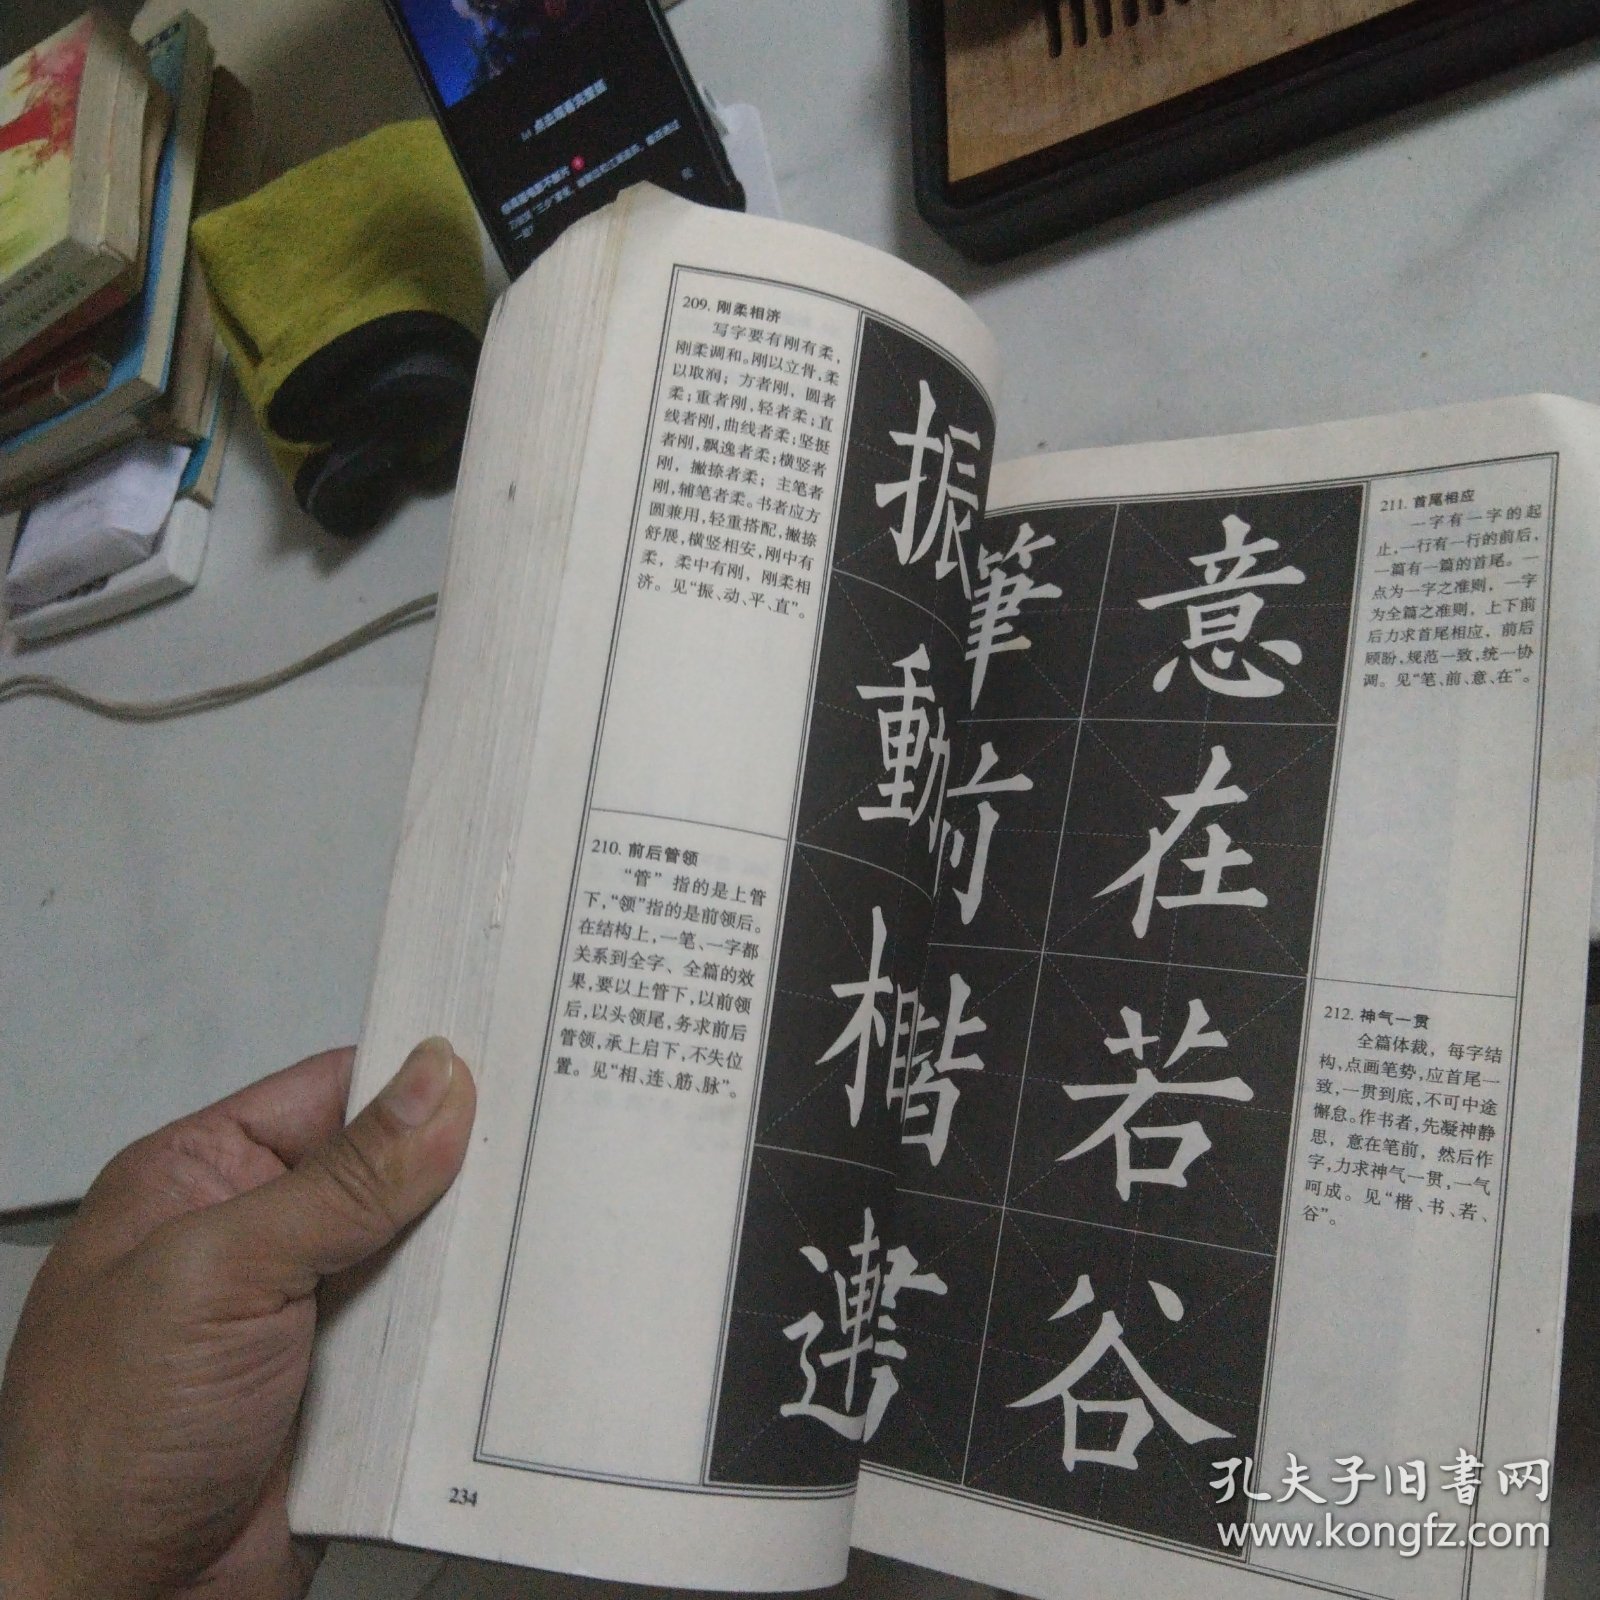 209. 刚柔相济
写字要有刚有柔，
刚柔调和。刚以立骨，柔
以取润；方者刚，圆者
柔；重者刚，轻者柔；直
线者刚，曲线者柔；坚挺
者刚，飘逸者柔；横竖者
刚，撇捺者柔；主笔者
刚，辅笔者柔。书者应方
圆兼用，轻重搭配，撇捺
舒展，横竖相安，刚中有
柔，柔中有刚，刚柔相
济。见“振、动、平、直”。
210. 前后管领
“管”指的是上管
下，“领”指的是前领后。
在结构上，一笔、一字都
关系到全字、全篇的效
果，要以上管下，以前领
后，以头领尾，务求前后
管领，承上启下，不失位
置。见“相、连、筋、脉”。
振
動
相
234
筆
前
楷
意
在
若
谷
211. 首尾相应
一字有一字的起
止，一行有一行的前后，
一篇有一篇的首尾。一
点为一字之准则，一字
为全篇之准则，上下前
后力求首尾相应，前后
顾盼，规范一致，统一协
调。见“笔、前、意、在”。
212. 神气一贯
全篇体裁，每字结
构，点画笔势，应首尾一
致，一贯到底，不可中途
懈怠。作书者，先凝神静
思，意在笔前，然后作
字，力求神气一贯，一气
呵成。见“楷、书、若、
谷”。
孔夫子旧書网
www.kongfz.com